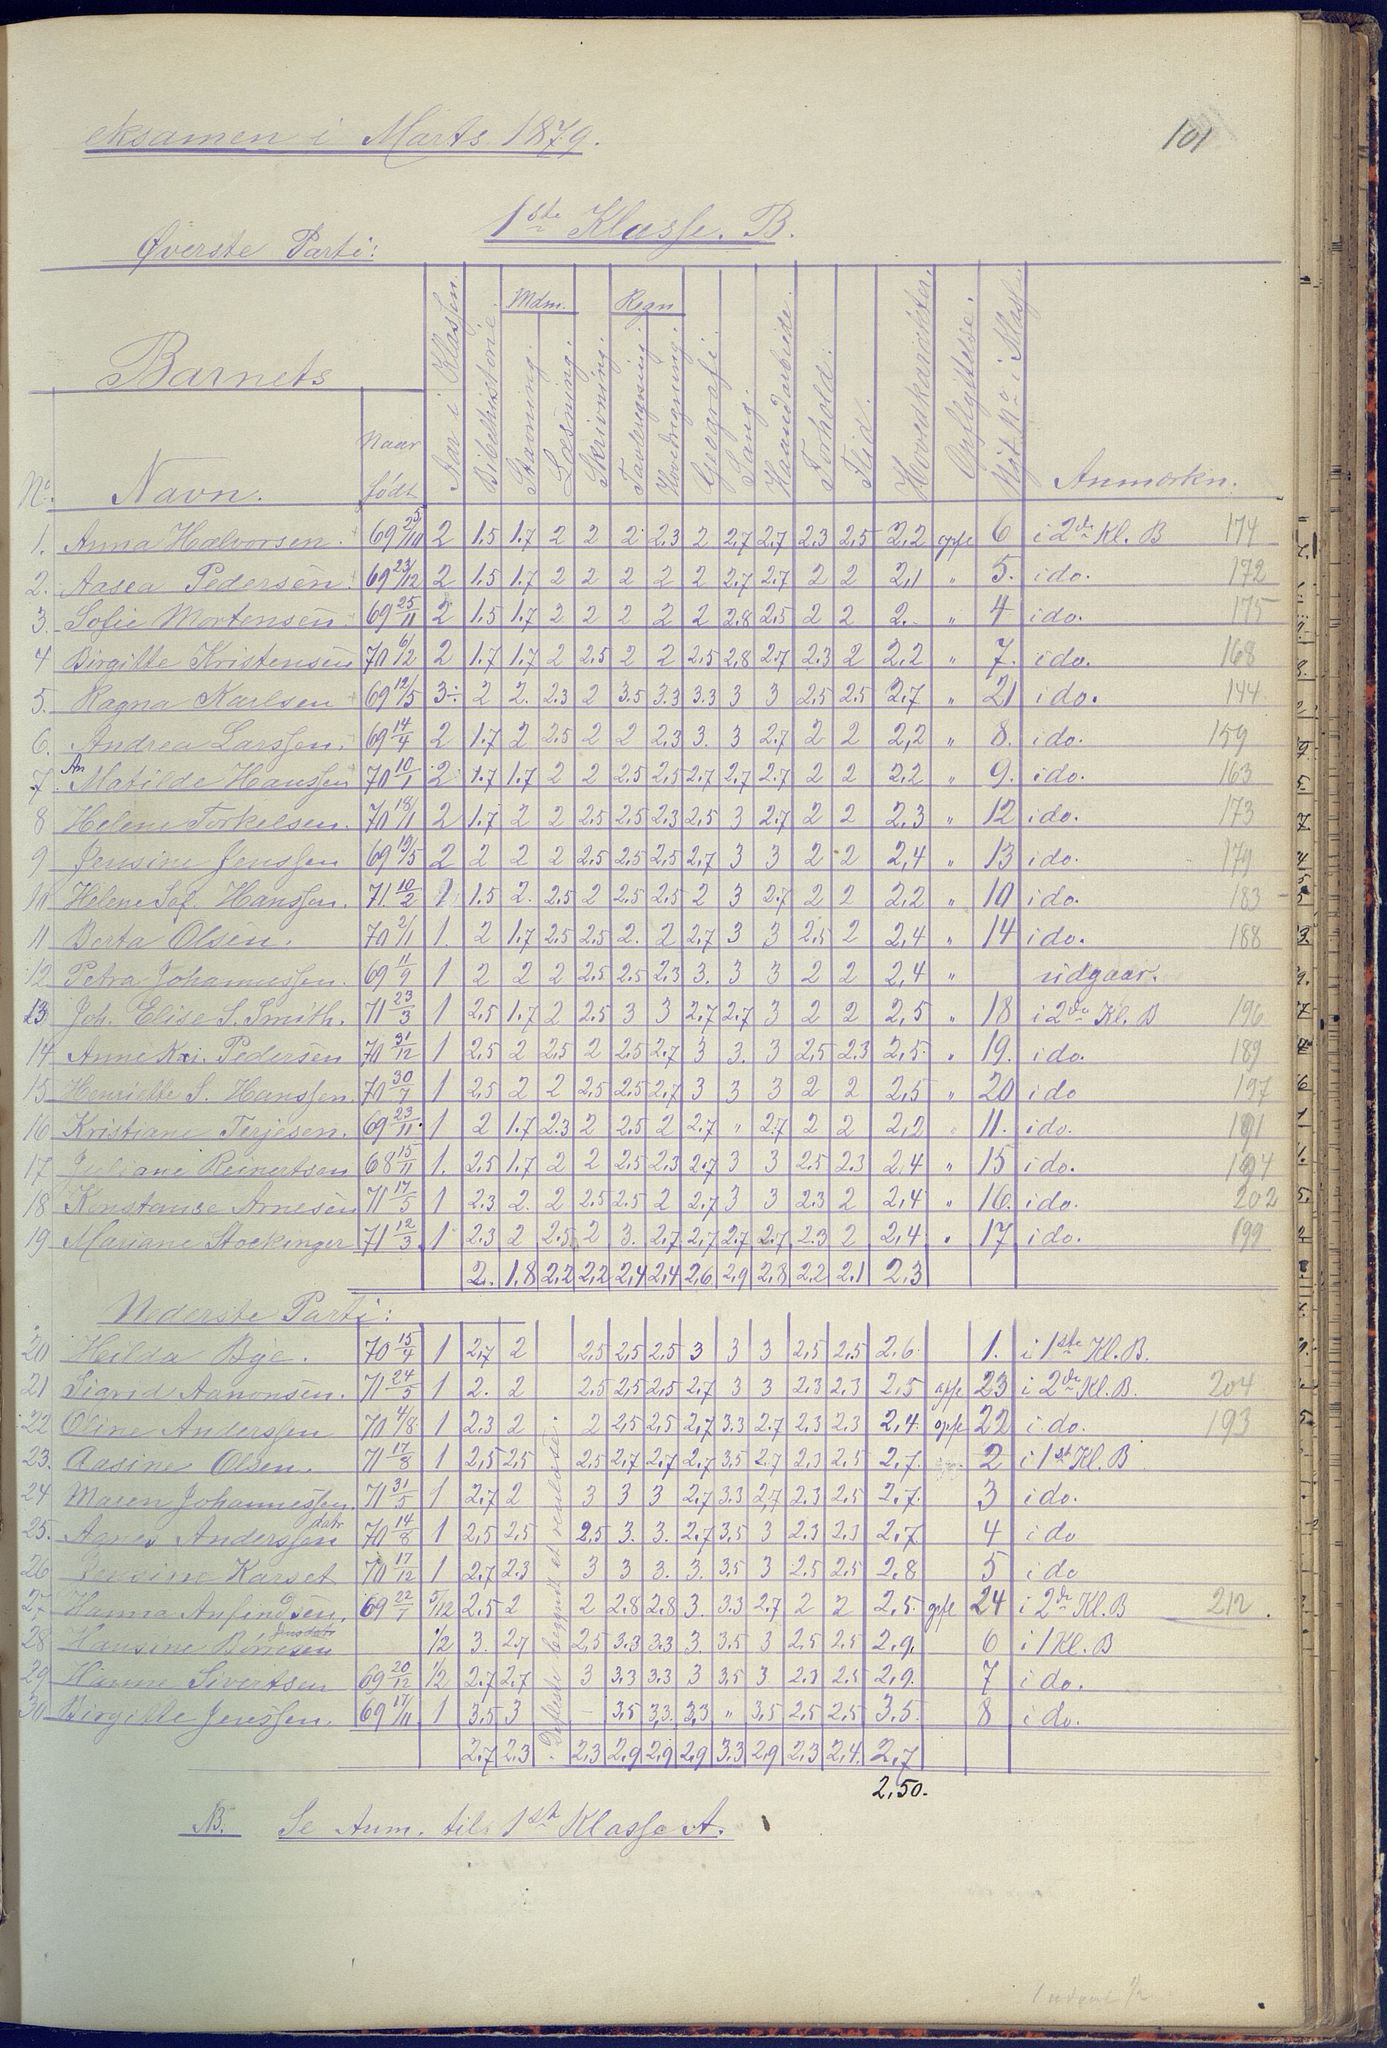 eksamen i Marts 1879.
101
1ste Klasse. B.
Øverste Parti:
Barnets
Aar i Klassen.
Bibelhistorie.
Mdm.
Stavning.
Læsning.
Skrivning.
Regn
Tavleregning.
Hovedregning.
Geografi.
Sang.
Haandarbeide.
Forhold.
Flid.
Hovedkarakter.
Opflyttelse.
Nyt No i Klasse
No.
Navn.
Naar født
Anmærkn.
1. Anna Halvorsen. 69 25/10 2 1.5 1.7 2 2 2 2.3 2 2.7 2.7 2.3 2.5 2.2 opfl 6 i 2den Kl. B 174
2. Aasea Pedersen 69 23/12 2 1.5 1.7 2 2 2 2 2 2.7 2.7 2 2 2,1 " 5. i do. 172
3. Sofie Mortensen 69 25/11 2 1.5 1.7 2 2 2 2 2 2.8 2.5 2 2 2. " 4 i do. 175
4 Birgitte Kristensen 70 6/12 2 1.7 1.7 2 2.5 2 2 2.5 2.8 2.7 2.3 2 2.2 " 7. i do. 168
5. Ragna Karlsen 69 12/5 3 2 2. 2.3 2 3.5 3.3 3.3 3 3 2.5 2.5 2.7 " 21 i do. 144
6. Andrea Larssen. 69 14/4 2 1.7 2 2.5 2 2 2.3 3. 3 2.7 2 2 2,2 " 8. i do. 159
7. An Matilde Hanssen 70 10/1 2 1.7 1.7 2 2 2.5 2.5 2.7 2.7 2.7 2 2 2.2 " 9. i do. 163
8 Helene Torkelsen. 70 18/1 2 1.7 2 2 2.5 2.5 2.3 2.5 3 2.7 2 2 2.3 " 12 i do. 173
9 Jensine Jenssen 69 19/5 2 2 2 2 2.5 2.5 2.5 2,7 3 3 2 2 2,4 " 13 i do. 179
10 Helene Sof. Hanssen. 71. 10/2 1 1.5 2. 2.5 2 2.5 2.5 2 3 2.7 2 2 2,2 " 10 i do. 183
11 Berta Olsen. 70 2/1 1. 2 1.7 2.5 2.5 2. 2 2.7 3 3 2.5 2 2,4 " 14 i do. 188
12 Petra Johannessen. 69 11/9 1 2 2 2 2.5 2.5 2.3 3. 3 3 2 2 2,4 " udgaar.
13 Joh. Elise S. Smith. 71 23/3 1 2,5 1.7 2 2.5 3 3 2.7 2.7 3 2 2 2,5 " 18 i 2den Kl. B 196
14 Anne Pedersen 70 31/12 1 2.5 2 2.5 2 2.5 2.7 3 3. 3 2.5 2.3 2,5. " 19. i do. 189
15 Henriette S. Hanssen. 70 30/7 1 2,5 2 2 2,5 2,5 2,7 3 3 3 2 2 2,5 " 20 i do 197
16 Kristiane Terjesen. 69 23/11 1 2 1.7 2.3 2 2.5 2 2.7 " 2.7 2 2 2,2 " 11. i do. 191
17 Juliane Reinertsen 68 15/11 1. 2.5 1.7 2 2 2.5 2.3 2.7 3 3 2.5 2.3 2,4 " 15 i do. 194
18 Konstanse Arnesen 71 17/5 1 2.3 2. 2 2.5 2.5 2 2.7 3 3 2.3 2 2,4 " 16. i do. 202
19 Mariane Stockinger 71 12/3 1 2.3 2 2.5 2 3. 2,7 2,7 2,7 2,7 2.3 2 2,4. " 17 i do. 199
2. 1.8 2,2 2,2 2,4 2,4 2,6 2,9 2,8 2,2 2.1 2,3
Nederste Parti:
20 Hilda Bye. 70 15/4 1 2,7 2 2,5 2,5 2,5 3 3 3 2,5 2,5 2.6. 1. i 1ste Kl. B.
21 Sigrid Aanonsen. 71 24/5 1 2. 2 2.5 2,5 2,5 2,7 3 3 2.3 2,3 2,5 opfl 23 i 2den Kl. B. 204
22 Oline Anderssen 70 4/8 1 2.3 2 2 2,5 2,5 2,7 3.3 2.7 2.3 2.3 2,4. opfl 22 i do. 193
23. Aasine Olsen. 71 17/8 1 2,5 2,5 2,5 2,7 2,7 2,7 3,5 2.7 2.3 2.5 2,7. 2 i 1ste Kl. B
24 Maren Johannessen. 71 31/5 1 2.7 2 3 3 3 2,7 3.3 2,7 2.3 2.5 2,7. 3 i do.
25. Agnes Anderssen datr 70 14/8 1 2,5 2,5 2,5 3. 3. 2.7 3,5 3 2.3 2.3 2,7. 4 i do
26 Jensine Karset 70 17/12 1 2,7 2.3 3 3 3. 3. 3,5 3 2.5 2.5 2,8 5 i do
27. Hanna Anfindsen. 69 22/7 5/12 2,5 2 2 2.8 2.8 3. 3.3 2.7 2 2 2,5. opfl 24 i 2den Kl. B 212.
28 Hansine Børresen 1/2 3. 2.7 2,5 3.3 3.3 3. 3,5 3 2.5 2.5 2,9. 6 i 1 Kl. B
29 Hanne Sivertsen 69 20/12 1/2 2.7 2,7 3 3,3 3.3 3 3,5 3. 2.3 2.5 2,9. 7 i do.
30 Birgitte Jenssen. 69 17/11 1 3.5 3 – 3,5 3,3 3,3 " 3,5 2,5 2,5 3.5. 8 i do.
De fleste begyndt at
2.7 2.3 2.3 2.9 2,9 2,9 3.3 2,9 2.3 2,4. 2,7
2,50.
NB. Se Anm. til 1ste Klasse A.